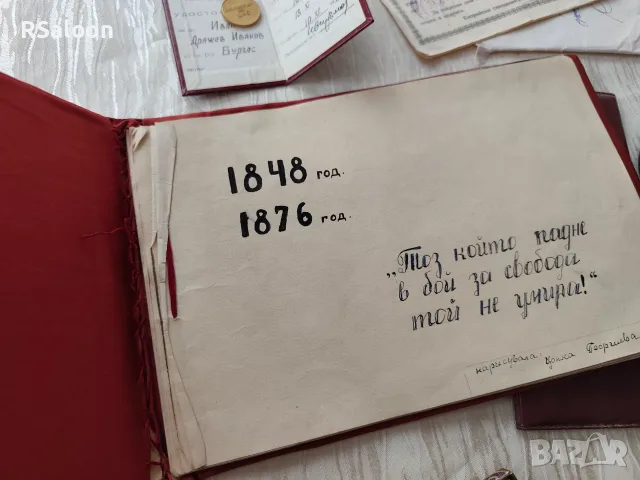 © RSaloon
УДОСТО
Ива
Дряжов Иванов
Бургас
1848 год.
1876 год.
„Тоз който падне
в бой за свобода
той не умира!“
нарисувала: Цонка Георгиева
BAZAR